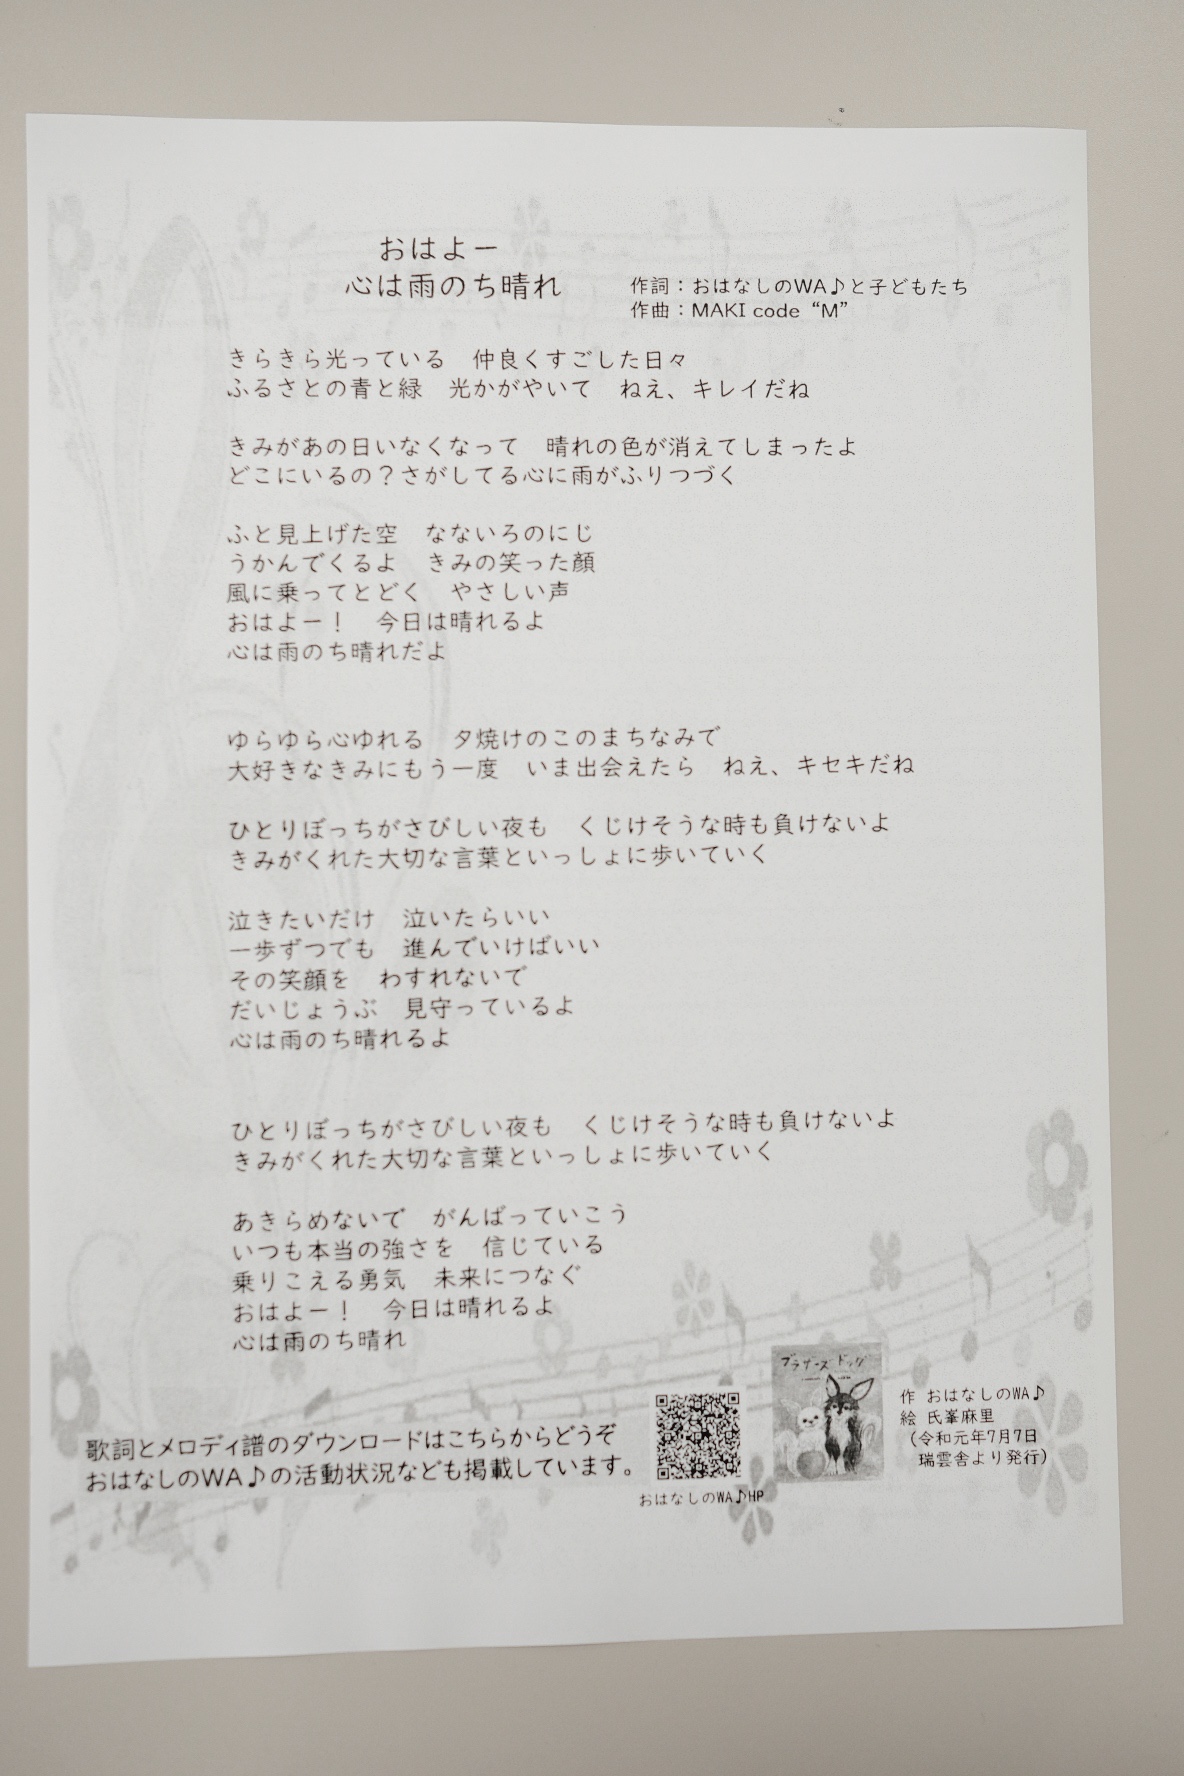 おはよー
心は雨のち晴れ
作詞：おはなしのWA♪と子どもたち
作曲：MAKI code “M”
きらきら光っている　仲良くすごした日々
ふるさとの青と緑　光かがやいて　ねえ、キレイだね
きみがあの日いなくなって　晴れの色が消えてしまったよ
どこにいるの？さがしてる心に雨がふりつづく
ふと見上げた空　なないろのにじ
うかんでくるよ　きみの笑った顔
風に乗ってとどく　やさしい声
おはよー！　今日は晴れるよ
心は雨のち晴れだよ
ゆらゆら心ゆれる　夕焼けのこのまちなみで
大好きなきみにもう一度　いま出会えたら　ねえ、キセキだね
ひとりぼっちがさびしい夜も　くじけそうな時も負けないよ
きみがくれた大切な言葉といっしょに歩いていく
泣きたいだけ　泣いたらいい
一歩ずつでも　進んでいけばいい
その笑顔を　わすれないで
だいじょうぶ　見守っているよ
心は雨のち晴れるよ
ひとりぼっちがさびしい夜も　くじけそうな時も負けないよ
きみがくれた大切な言葉といっしょに歩いていく
あきらめないで　がんばっていこう
いつも本当の強さを　信じている
乗りこえる勇気　未来につなぐ
おはよー！　今日は晴れるよ
心は雨のち晴れ
歌詞とメロディ譜のダウンロードはこちらからどうぞ
おはなしのWA♪の活動状況なども掲載しています。
おはなしのWA♪HP
ブラザーズドッグ
作 おはなしのWA♪
絵 氏峯麻里
（令和元年7月7日
瑞雲舎より発行）